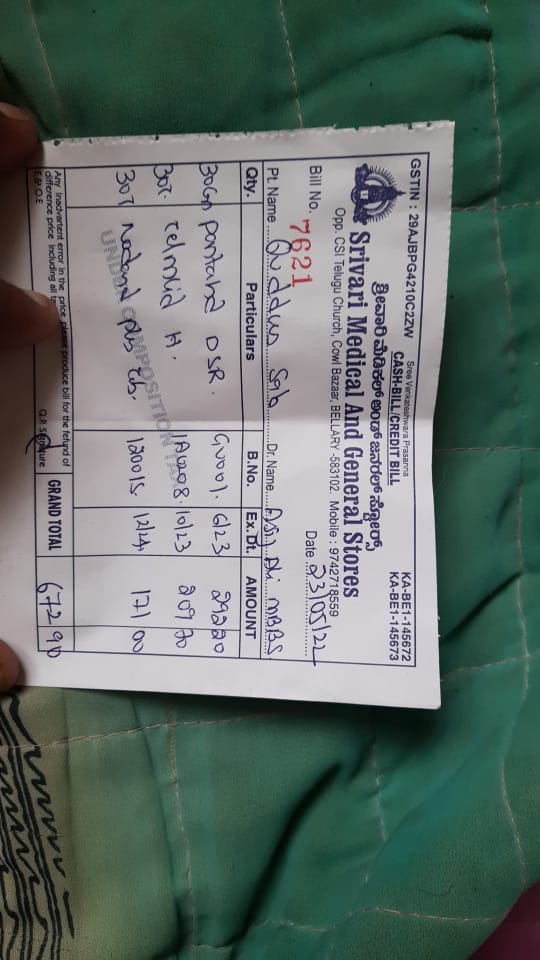 GSTIN : 29AJBPG4210C2ZW
Sree Venkateshwara Prasanna
CASH-BILL/CREDIT BILL
KA-BE1-145672
KA-BE1-145673
ಶ್ರೀವಾರಿ ಮೆಡಿಕಲ್ ಅಂಡ್ ಜನರಲ್ ಸ್ಟೋರ್ಸ್
Srivari Medical And General Stores
Opp. CSI Telugu Church, Cowl Bazaar, BELLARY -583102. Mobile : 9742718559
Bill No. 7621 Date 23/05/22
Pt. Name Quddus Sab Dr. Name Ali MBBS
Qty. Particulars B.No. Ex.Dt. AMOUNT
30Cap DSR. 6/23 292 20
30T. H. 10/23 209 70
30T 171 00
UNDER COMPOSITION TAX
Any Inadvertent error in the price please produce bill for the refund of
difference price Including all
E.& O.E Q.P. Signature
GRAND TOTAL 672 90